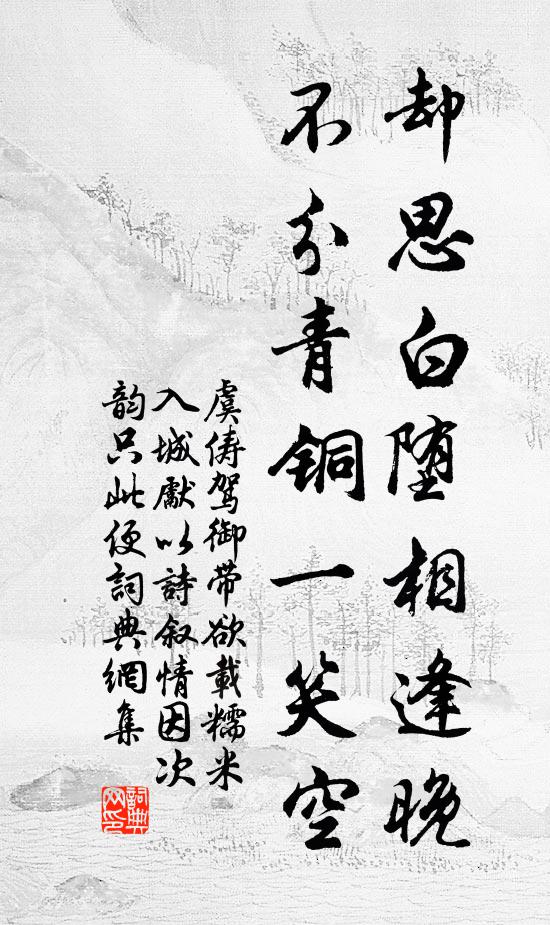 却思白堕相逢晚
不分青铜一笑空
虞俦驾御带欲載糯米
入城獻以詩叙情因次
韵只此便詞典網集
詞典网印